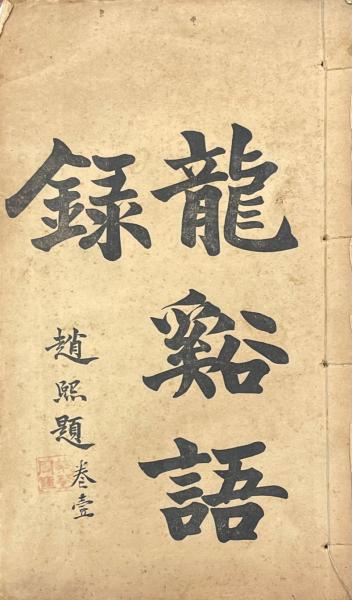 龍谿語
録
趙熙題
卷壹